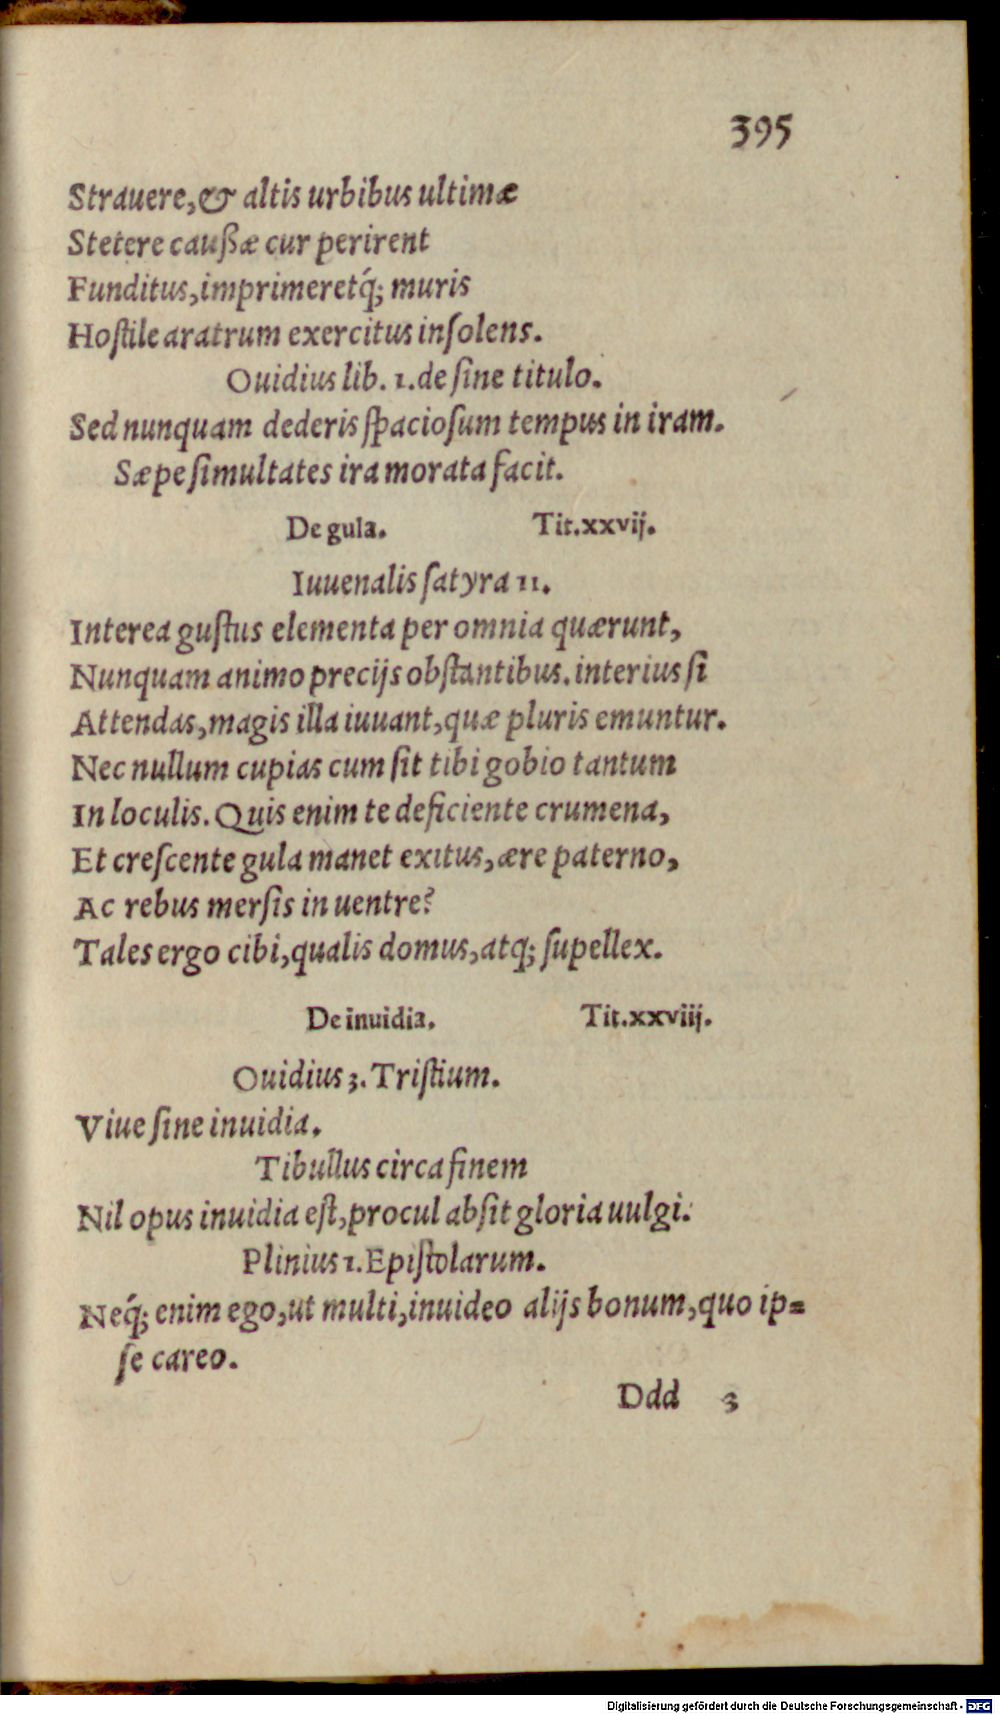 395
Strauere,& altis urbibus ultimæ
Stetere caußæ cur perirent
Funditus,imprimeretq́; muris
Hoſtile aratrum exercitus inſolens.
Ouidius lib. 1. de ſine titulo.
Sed nunquam dederis ſpacioſum tempus in iram.
Sæpe ſimultates ira morata facit.
De gula. Tit.xxvij.
Iuuenalis ſatyra 11.
Interea guſtus elementa per omnia quærunt,
Nunquam animo precijs obſtantibus. interius ſi
Attendas,magis illa iuuant,quæ pluris emuntur.
Nec nullum cupias cum ſit tibi gobio tantum
In loculis. Quis enim te deficiente crumena,
Et creſcente gula manet exitus,ære paterno,
Ac rebus merſis in uentre?
Tales ergo cibi,qualis domus,atq; ſupellex.
De inuidia. Tit.xxviij.
Ouidius 3. Triſtium.
Viue ſine inuidia.
Tibullus circa finem
Nil opus inuidia eſt,procul abſit gloria uulgi.
Plinius 1. Epiſtolarum.
Neq́; enim ego,ut multi,inuideo alijs bonum,quo ip=
ſe careo.
Ddd 3
Digitalisierung gefördert durch die Deutsche Forschungsgemeinschaft - DFG